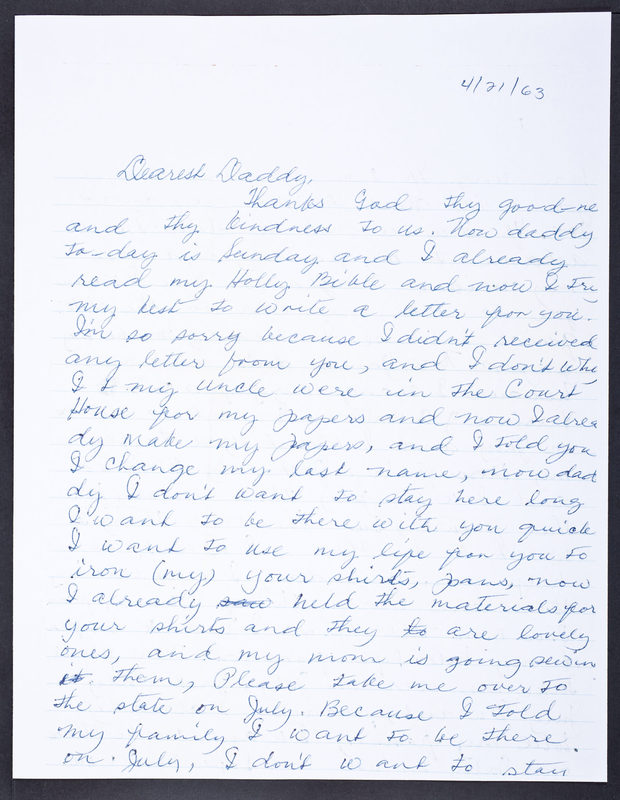 4/21/63
Dearest Daddy,
Thanks God thy good-ne
and thy kindness to us. Now daddy
to-day is Sunday and I already
read my Holly Bible and now I try
my best to write a letter for you.
I'm so sorry because I didn't received
any letter from you, and I don't why
I & my uncle were in the Court
House for my papers and now I alrea
dy make my papers, and I told you
I change my last name, now dad
dy I don't want to stay here long
I want to be there with you quick
I want to use my life for you to
iron (my) your shirts, pans, now
I already saw held the materials for
your shirts and they to are lovely
ones, and my mom is going sewin
it. them, Please take me over to
the state on July. Because I told
my family I want to be there
on July, I don't want to stay